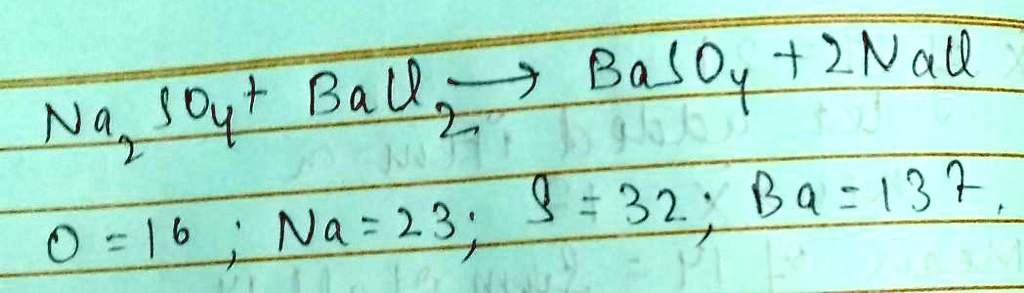 Na₂SO₄ + BaCl₂ → BaSO₄ + 2NaCl
O = 16 ; Na = 23; S = 32; Ba = 137.